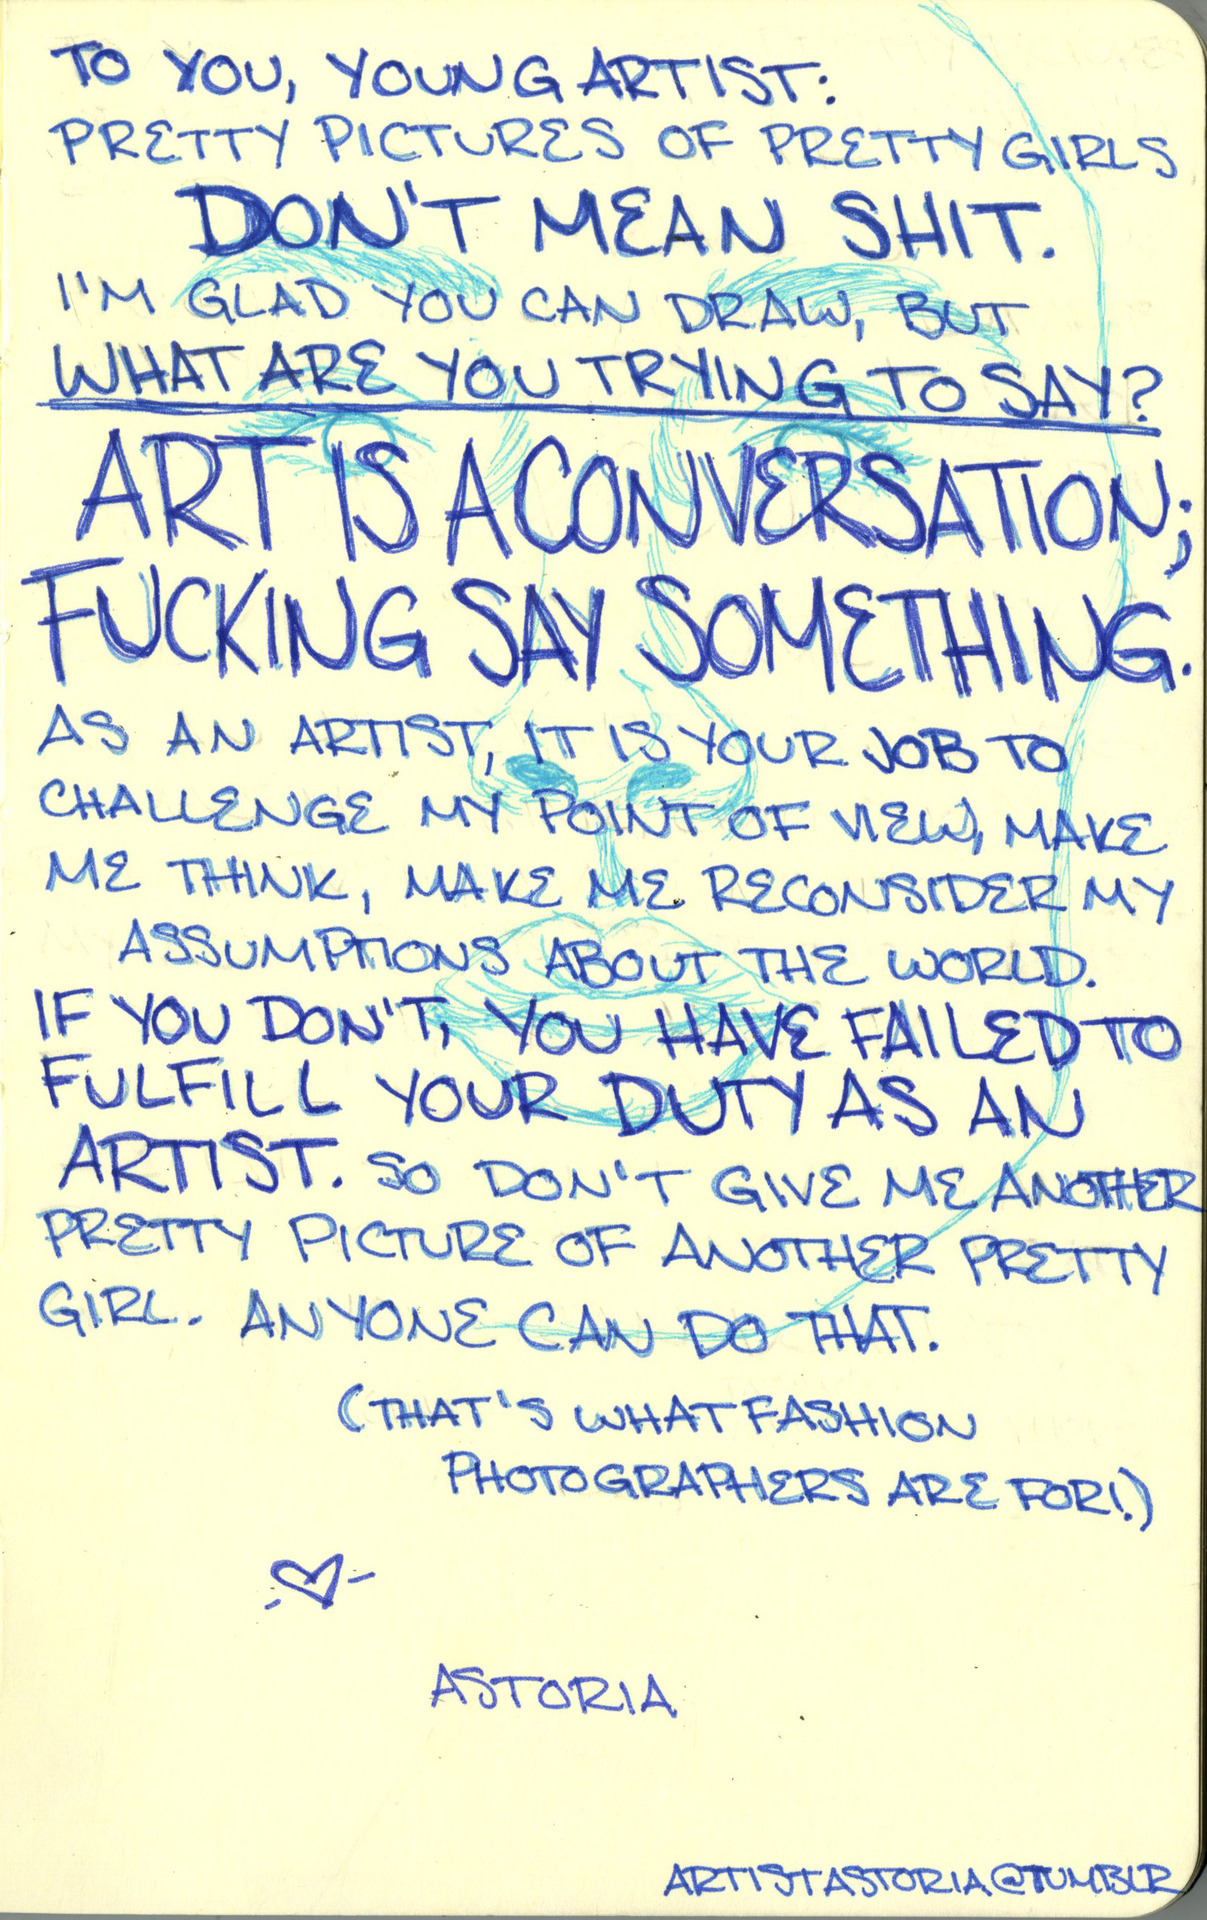 TO YOU, YOUNG ARTIST:
PRETTY PICTURES OF PRETTY GIRLS
DON'T MEAN SHIT.
I'M GLAD YOU CAN DRAW, BUT
WHAT ARE YOU TRYING TO SAY?
ART IS A CONVERSATION;
FUCKING SAY SOMETHING.
AS AN ARTIST, IT IS YOUR JOB TO
CHALLENGE MY POINT OF VIEW, MAKE
ME THINK, MAKE ME RECONSIDER MY
ASSUMPTIONS ABOUT THE WORLD.
IF YOU DON'T, YOU HAVE FAILED TO
FULFILL YOUR DUTY AS AN
ARTIST. SO DON'T GIVE ME ANOTHER
PRETTY PICTURE OF ANOTHER PRETTY
GIRL. ANYONE CAN DO THAT.
(THAT'S WHAT FASHION
PHOTOGRAPHERS ARE FOR!)
ASTORIA
ARTISTASTORIA@TUMBLR